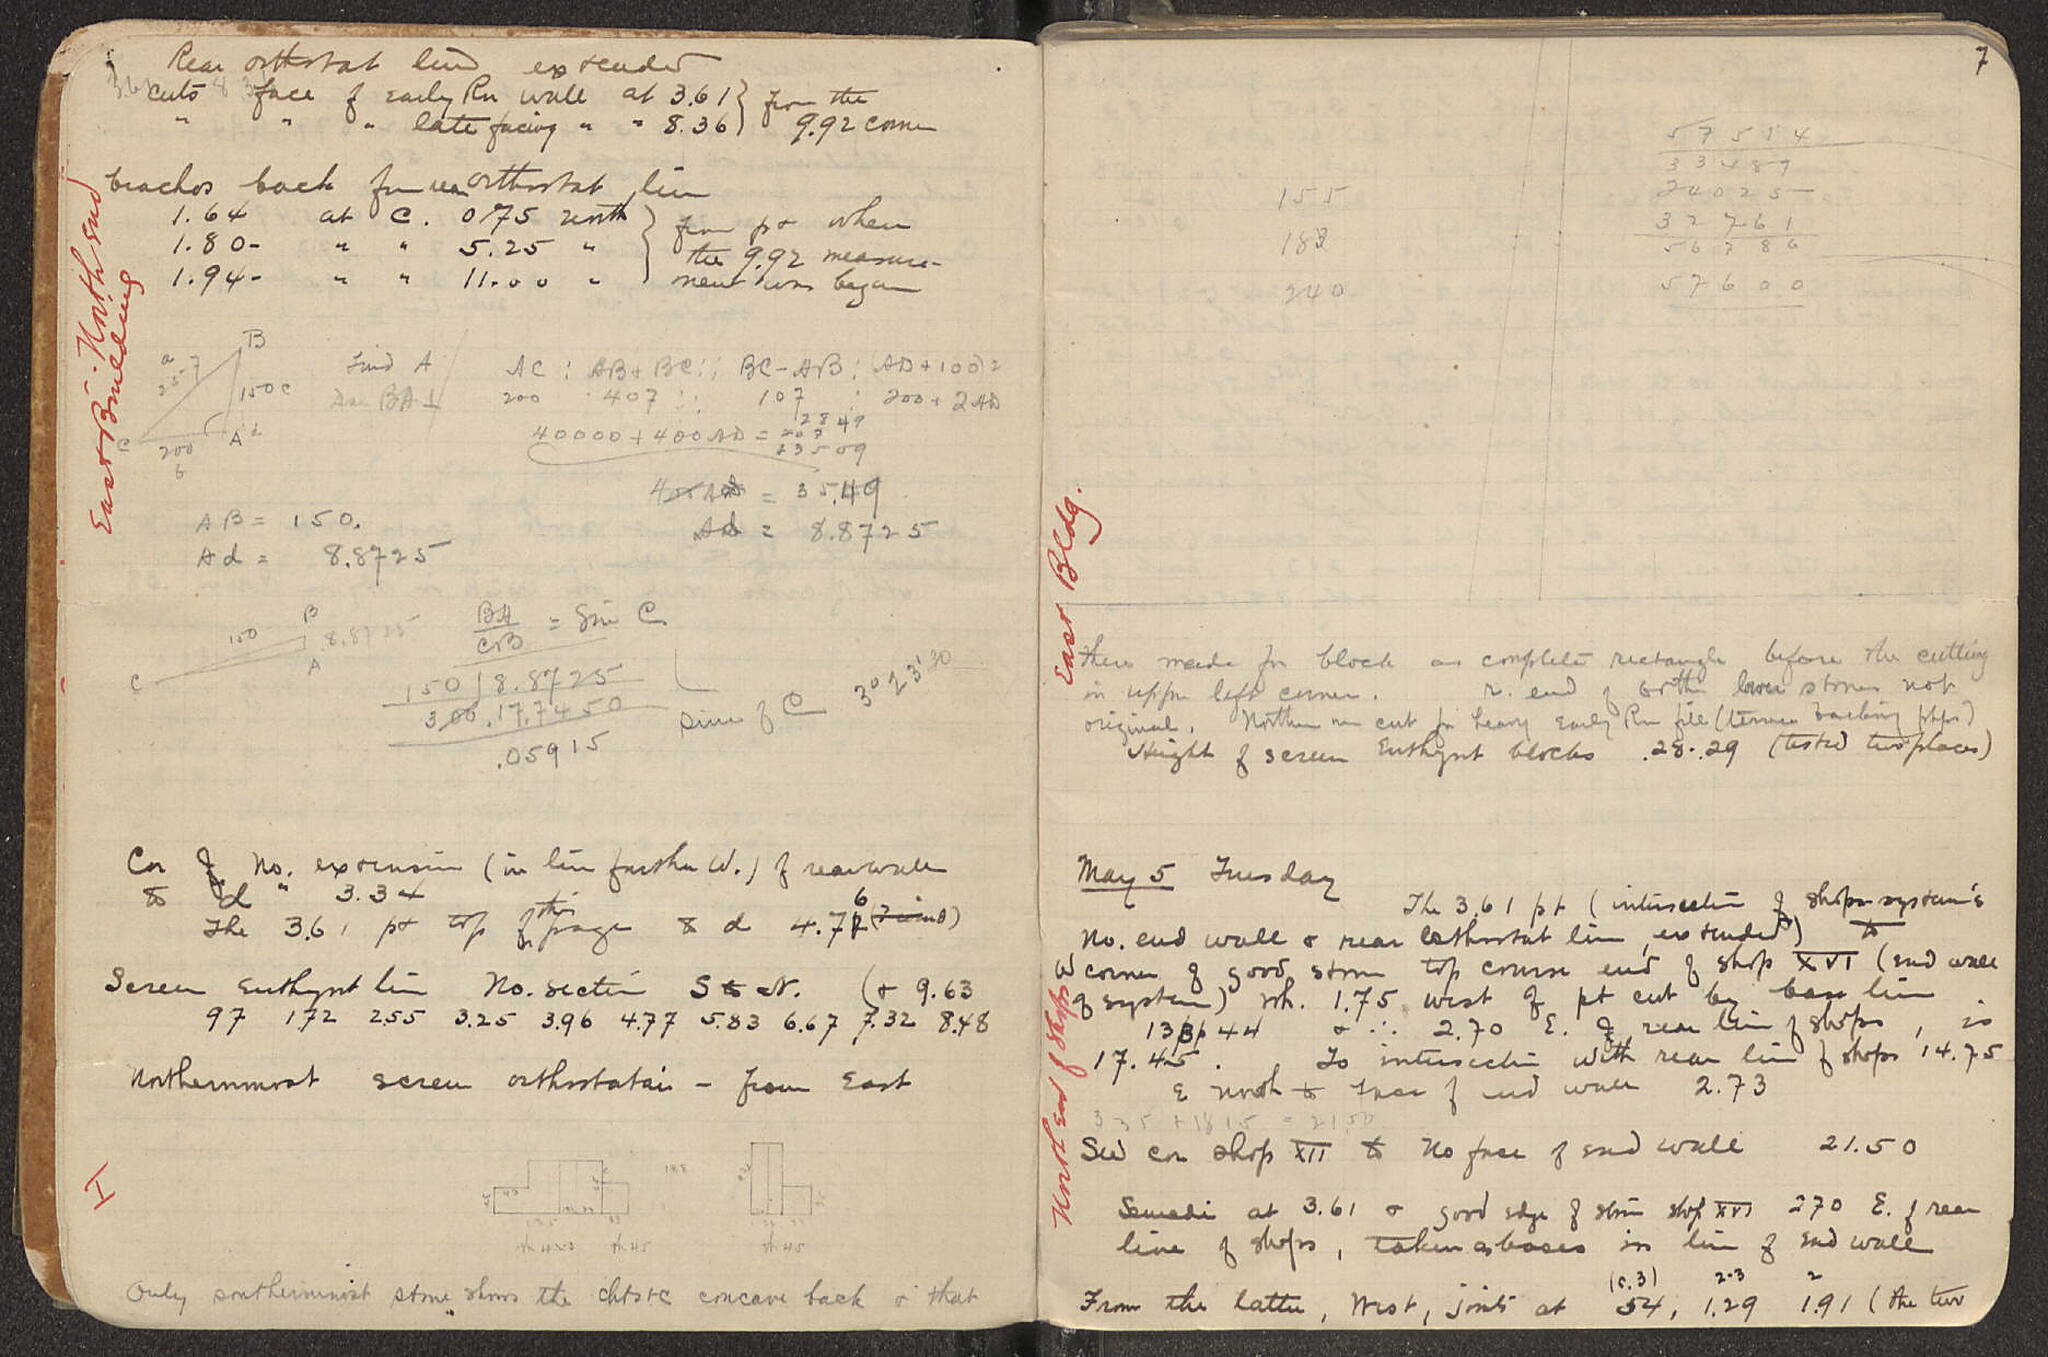 Rear orthostat line extended
cuts face of early Rn wall at 3.61 } from the
" " " late facing " " 8.36 } 9.92 corner
back from rear orthostat line
1.64 at C. 0.75 north } from pt where
1.80- " " 5.25 " } the 9.92 measure-
1.94- " " 11.00 " } ment was began
East Building - North end
B
a
257
150 c
C
A d
200
b
Find A
AC : AB + BC :: BC - AB : (AD + 100) 2
200 407 :: 107 : 200 + 2 AD
2849
40000 + 400 AD =
43509
= 35.49
Ad = 8.8725
AB = 150.
Ad = 8.8725
B
150
8.8725
A
C
BA
CB
= Sin C
150 ) 8.8725
300 . 17.7450
.05915
Sine of C 3° 23' 30
Cor of No. extension (in line further W.) of rear wall
to d " 3.34
The 3.61 pt top of this page to d 4.76
Screen Euthynt line No. section S to N. (+ 9.63
97 172 255 3.25 3.96 4.77 5.83 6.67 7.32 8.48
Northernmost screen orthostatai - from East
I
Only southernmost stone shows the chtstc concave back & that
7
57584
33489
155
24025
32761
183
56786
240
57600
East Bldg.
there made for block as complete rectangle before the cutting
in upper left corner. r. end of lower stones not
original. Northern cut for heavy early Rn fill (terrace backing phps)
Height of screen Euthynt blocks .28-.29 (tested two places)
May 5 Tuesday
The 3.61 pt (intersection of shops system's
No. end wall & rear orthostat line, extended) to
W corner of good stone top course end of shop XVI (end wall
of system) wh. 1.75 west of pt cut by base line
44 & ∴ 2.70 E. of rear line of shops, is
17.45. To intersection with rear line of shops 14.75
E north to face of end wall 2.73
335 + 1815 = 2150
SW cor shop XII to No face of end wall 21.50
North End of Shops
at 3.61 & good edge of stone shop XVI 270 E. of rear
line of shops, taken as bases in line of end wall
(c.3) 2.3 2
From the latter, West, joints at 54, 1.29 1.91 (the two